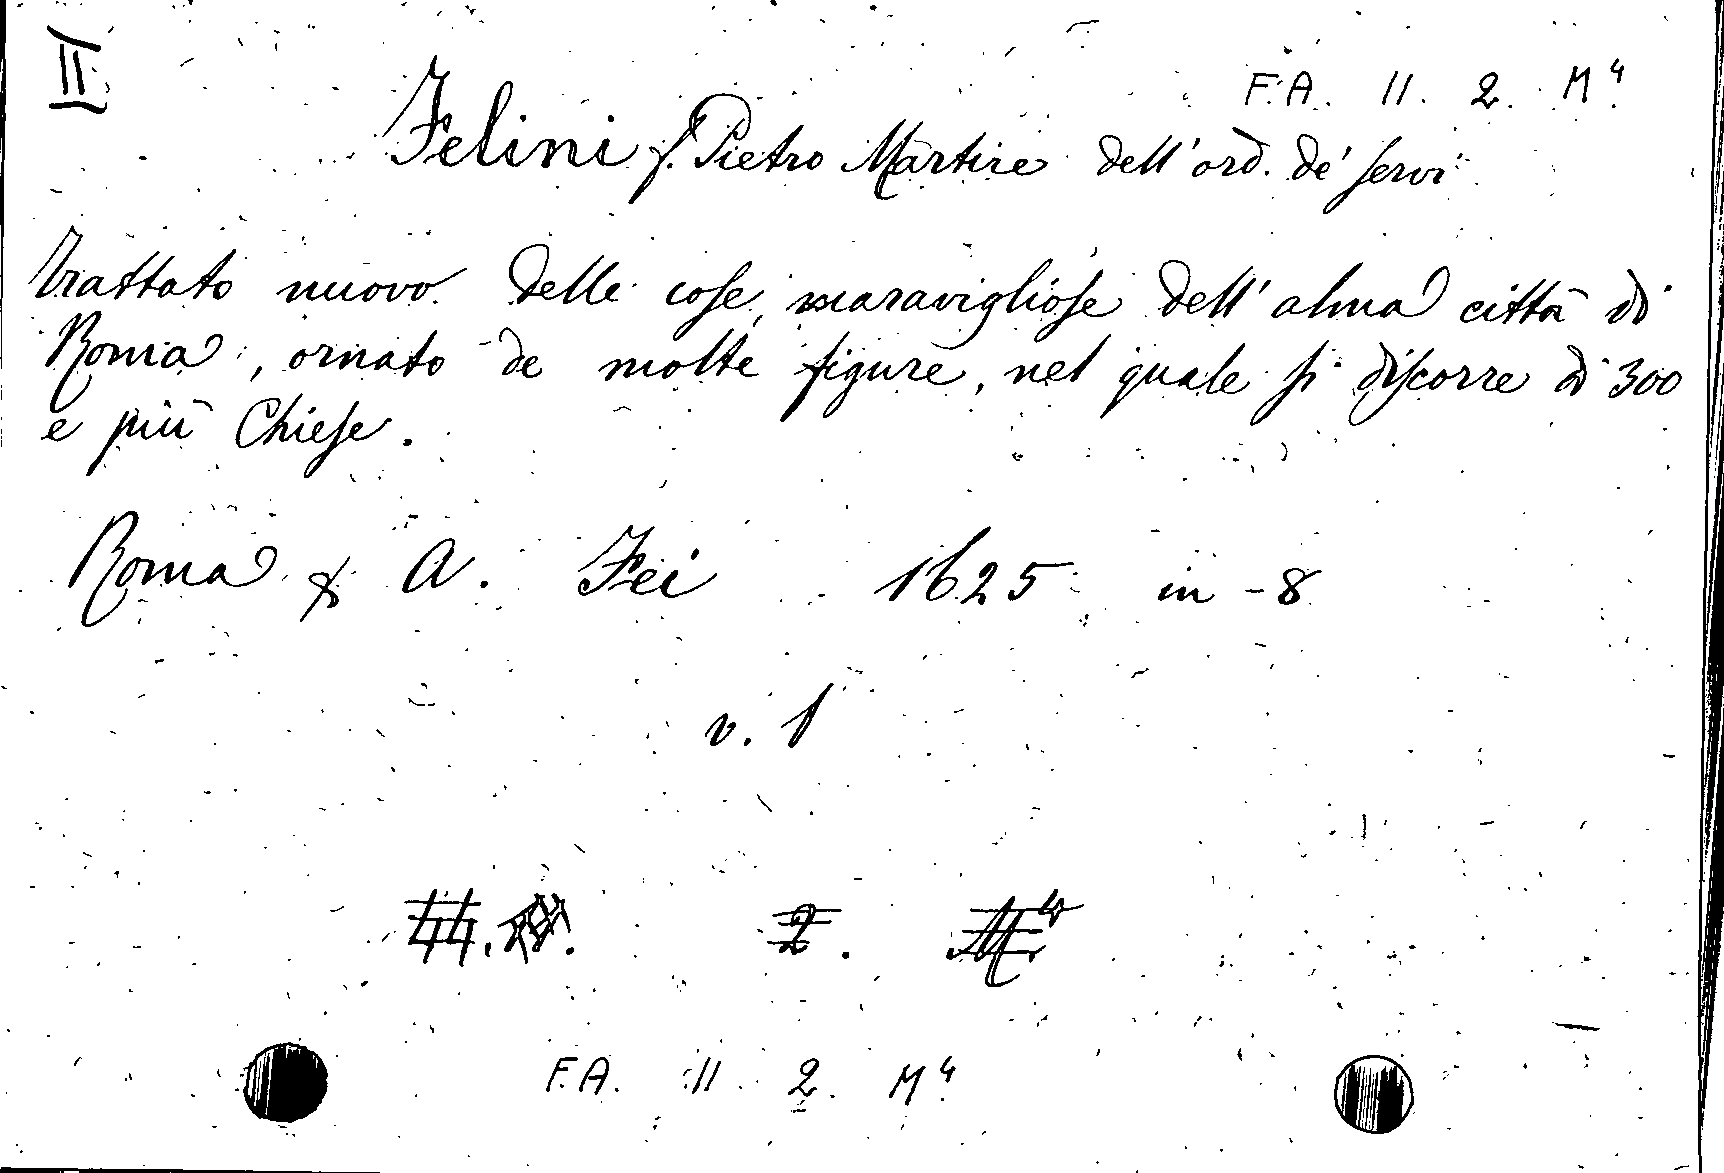 II
F.A. II. 2. M⁴
Felini f. Pietro Martire dell'ord. de' servi
Trattato nuovo delle cose maravigliose dell'alma città di
Roma, ornato de molte figure, nel quale si discorre di 300
e più Chiese.
Roma x A. Fei 1625 in-8
v. 1
2. M⁴
F.A. II 2. M⁴